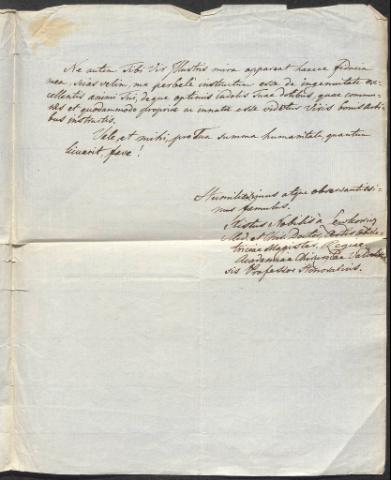 Ne autem Tibi Vir Illustris mira appareat haecce fiducia
mea, scias velim, me perbelle instructum esse de ingenuitate ex-
cellentis animi Tui, deque optimis indolis Tuae dotibus, quae commu-
nes et quodammodo propriae ac innatae esse videntur Viris bonis Arti-
bus instructis.
Vale, et mihi, pro Tua summa humanitate, quantum
licuerit, fave!
Humillimus atque observantissi-
mus famulus.
Nobilis a
Med. et Chir. Doctor, Artis obste-
triciae Magister, Regiae
Academiae Chirurgicae
sis Professor Honorarius.